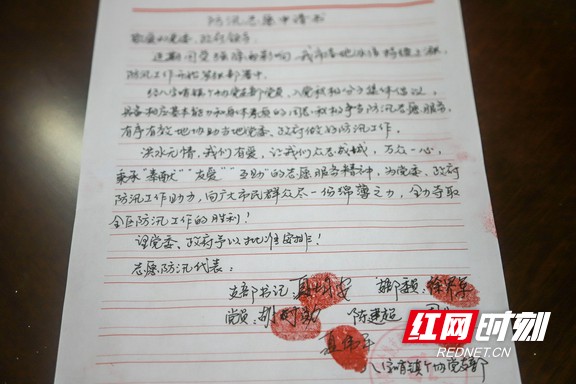 防汛志愿申请书
敬爱的党委、政府领导：
近期因受强降雨影响，我市各地水位持续上涨，
防汛工作开始紧张部署中。
经八字哨镇个协党支部党员、入党积极分子集体倡议，
具备相应基本能力和身体素质的同志积极争当防汛志愿服务，
有序有效地协助当地党委、政府做好防汛工作。
洪水无情，我们有爱，让我们众志成城，万众一心，
秉承"奉献""友爱""互助"的志愿服务精神，为党委、政府
防汛工作助力，向广大市民群众尽一份绵薄之力，全力夺取
全区防汛工作的胜利！
望党委、政府予以批准安排！
志愿防汛代表：
支部书记：
党员：胡 陈建超
八字哨镇个协党支部
红网时刻
REDNET.CN